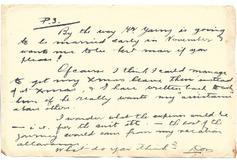 P.S.
By the way Mr Garry is going
to be married early in November &
wants me to be best man if you
please!
Of course I think I could manage
to get away Xmas leave then instead
of at Xmas, & I have written back to ask
him if he really wants my assistance
above others.
I wonder what the expense would be
— i.e. for the suit etc. — the cost of the
journey would come from my vacation
allowance.
What do you think? Don